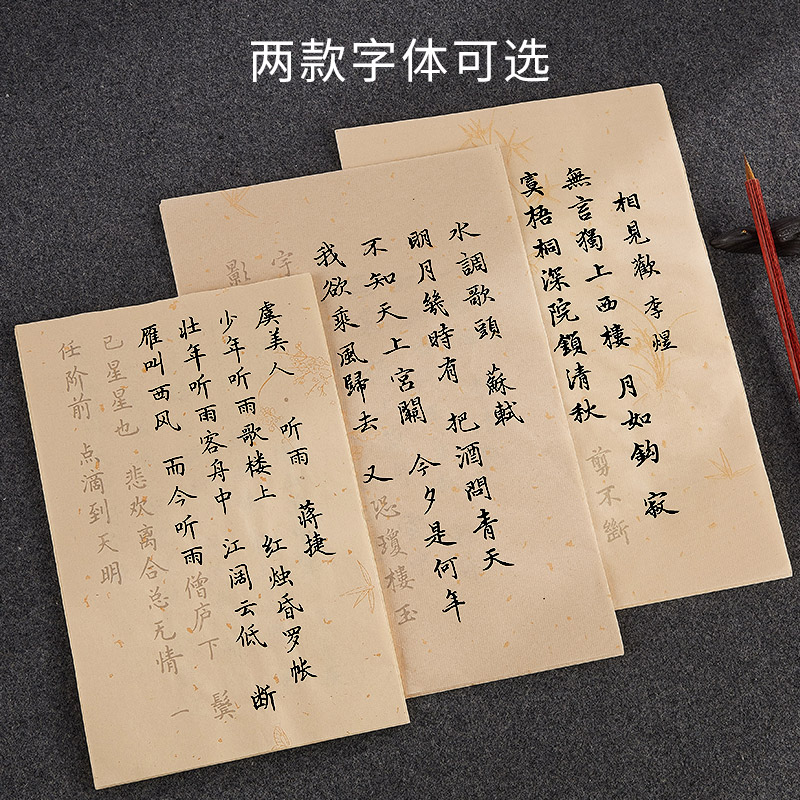 两款字体可选
相見歡 李煜
無言獨上西樓 月如鈎 寂
寞梧桐深院鎖清秋 剪不斷
水調歌頭 蘇軾
明月幾時有 把酒問青天
不知天上宮闕 今夕是何年
我欲乘風歸去 又恐瓊樓玉
宇
影
虞美人·听雨 蒋捷
少年听雨歌楼上 红烛昏罗帐
壮年听雨客舟中 江阔云低 断
雁叫西风 而今听雨僧庐下 鬓
已星星也 悲欢离合总无情 一
任阶前 点滴到天明